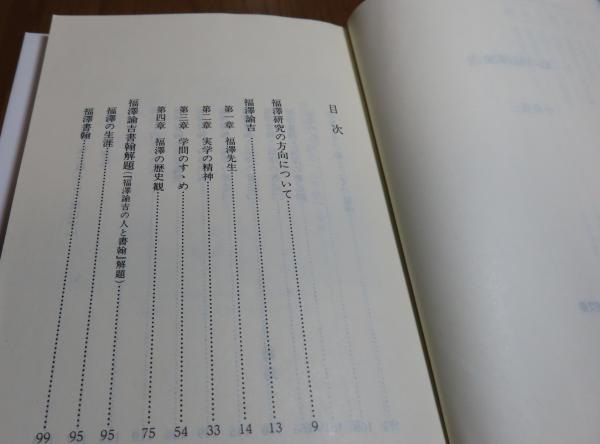 目次
福澤研究の方向について 9
福澤諭吉 13
第一章 福澤先生 14
第二章 実学の精神 33
第三章 学問のすゝめ 54
第四章 福澤の歴史観 75
福澤諭吉書翰解題(『福澤諭吉の人と書翰』解題) 95
福澤の生涯 95
福澤書翰 99